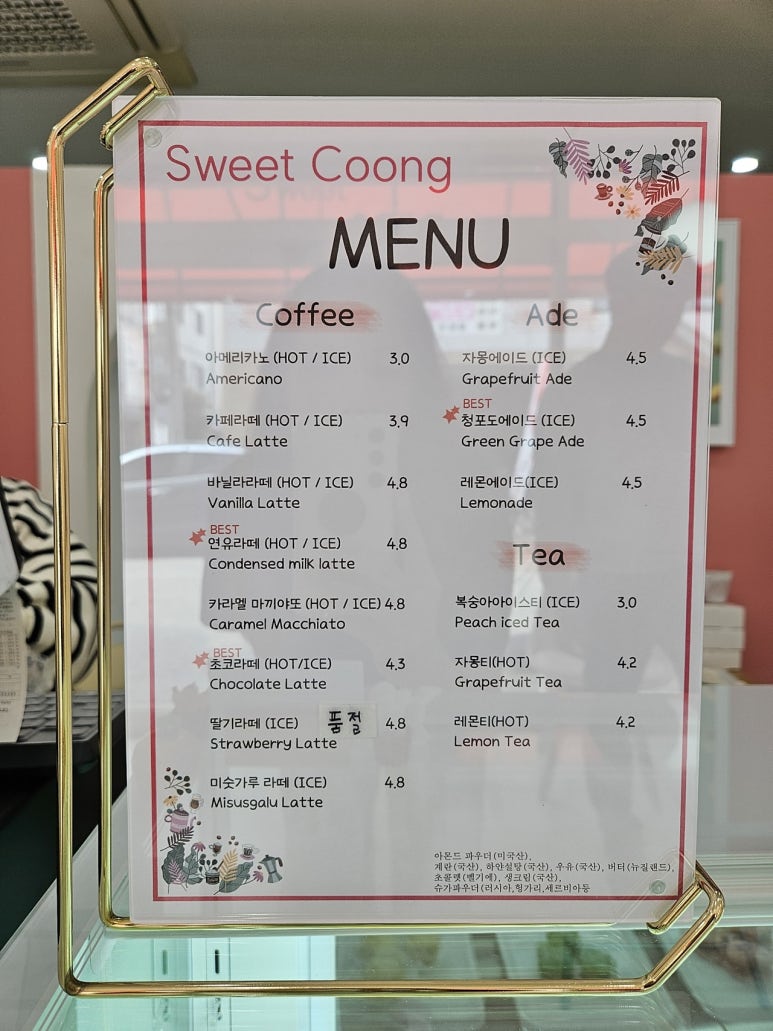 Sweet Coong
MENU
Coffee
아메리카노 (HOT / ICE) 3.0
Americano
카페라떼 (HOT / ICE) 3.9
Cafe Latte
바닐라라떼 (HOT / ICE) 4.8
Vanilla Latte
BEST
연유라떼 (HOT / ICE) 4.8
Condensed milk latte
카라멜 마끼야또 (HOT / ICE) 4.8
Caramel Macchiato
BEST
초코라떼 (HOT/ICE) 4.3
Chocolate Latte
딸기라떼 (ICE) 품절 4.8
Strawberry Latte
미숫가루 라떼 (ICE) 4.8
Misusgalu Latte
Ade
자몽에이드 (ICE) 4.5
Grapefruit Ade
BEST
청포도에이드 (ICE) 4.5
Green Grape Ade
레몬에이드(ICE) 4.5
Lemonade
Tea
복숭아아이스티 (ICE) 3.0
Peach iced Tea
자몽티(HOT) 4.2
Grapefruit Tea
레몬티(HOT) 4.2
Lemon Tea
아몬드 파우더(미국산),
계란(국산), 하얀설탕(국산), 우유(국산), 버터(뉴질랜드),
초콜렛(벨기에), 생크림(국산),
슈가파우더(러시아,헝가리,세르비아등